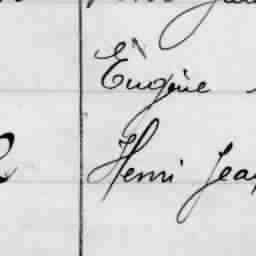 Eugène
Henri Jean